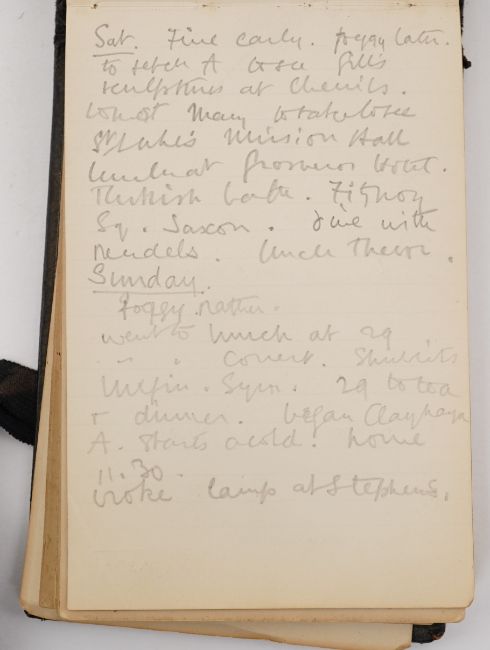 Sat. Fine early. foggy later.
to fetch A to see Gill's
sculptures at Chenils.
to see
St Luke's Mission Hall
lunch at Grosvenor Hotel.
Turkish bath. Fitzroy
Sq. Saxon. dine with
Rendels. Uncle Trevor.
Sunday.
Foggy rather.
went to lunch at 29
" " " concert. Schubert's
Unfin. Sym. 29 to tea
+ dinner. began Clayhanger
A. starts a cold! home
11.30.
broke lamp at Stephens.